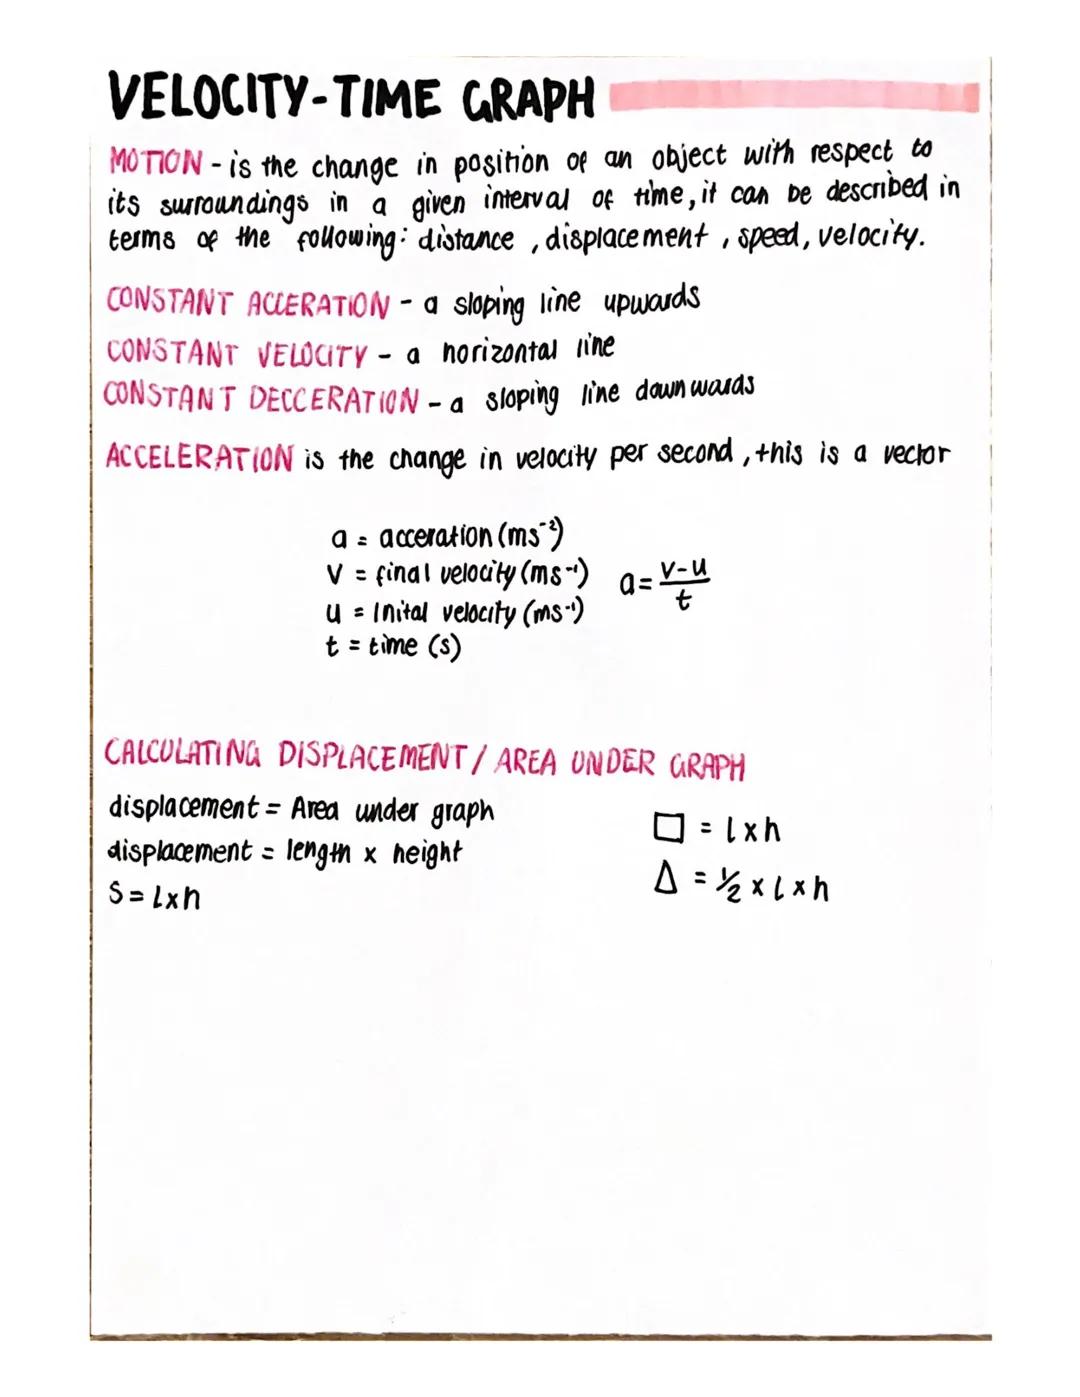 VELOCITY-TIME GRAPH
MOTION - is the change in position of an object with respect to
its surroundings in a given interval of time, it can be described in
terms of the following: distance, displacement, speed, velocity.
CONSTANT ACCERATION - a sloping line upwards
CONSTANT VELOCITY - a horizontal line
CONSTANT DECCERATION - a sloping line downwards
ACCELERATION is the change in velocity per second, this is a vector
a = acceration (ms⁻²)
V = final velocity (ms⁻¹)
u = Inital velocity (ms⁻¹)
t = time (s)
a = v-u/t
CALCULATING DISPLACEMENT / AREA UNDER GRAPH
displacement = Area under graph
displacement = length x height
S = l x h
□ = l x h
Δ = ½ x l x h